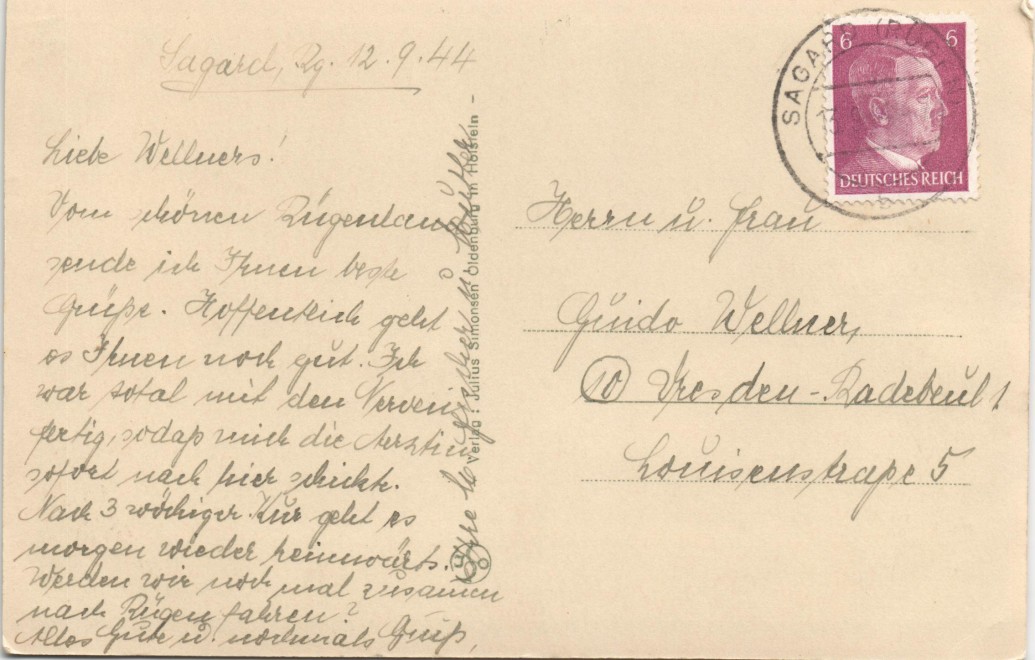 Sagard, Rg. 12.9.44
Liebe Wellners!
Vom schönen Rügenland
sende ich Ihnen beste
Grüße. Hoffentlich geht
es Ihnen noch gut. Ich
war total mit den Nerven
fertig, sodaß mich die Aerztin
sofort nach hier schickte.
Nach 3 wöchiger Kur geht es
morgen wieder heimwärts.
Werden wir noch mal zusamen
nach Rügen fahren?
Alles Gute u. nochmals Grüß,
Ihre
u.
Verlag: Julius Simonsen Oldenburg in Holstein -
SAGARD (RÜGEN)
6 6
DEUTSCHES REICH
Herrn u. Frau
Guido Wellner,
(10) Dresden-Radebeul 1
Louisenstraße 5